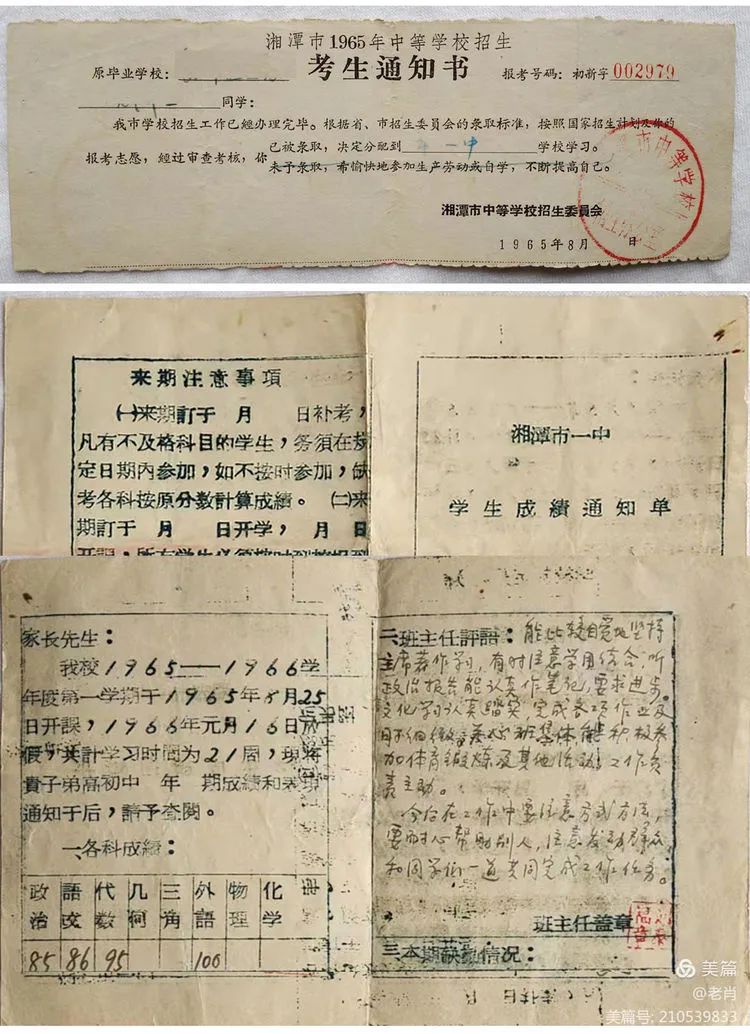 湘潭市1965年中等学校招生
考生通知书
原毕业学校：
报考号码：初新字 002979
同学：
我市学校招生工作已經办理完毕。根据省、市招生委員会的录取标准，按照国家招生計划及你的
报考志愿，經过审查考核，你
已被录取，决定分配到 一中 学校学习。
未予录取，希愉快地参加生产劳动或自学，不断提高自己。
湘潭市中等学校招生委員会
1965年8月 日
来期注意事項
㈠来期訂于 月 日补考，
凡有不及格科目的学生，务須在規
定日期內参加，如不按时参加，缺
考各科按原分数計算成績。㈡来
期訂于 月 日开学， 月 日
开課，所有学生必須按时到校报到
湘潭市一中
学生成績通知单
家长先生：
我校1965——1966学
年度第一学期于1965年8月25
日开課，1966年元月16日放
假，共計学习时間为21周，現将
貴子弟高初中 年 期成績和表現
通知于后，請予查閱。
一各科成績：
政治 語文 代数 几何 三角 外語 物理 化学
85 86 95 100
二班主任評語：能比较自觉地坚持
主席著作学习，有时注意学用结合，听
政治报告能认真作笔记，要求进步。
文化学习认真踏实，完成各项作业及
时细致，关心班集体，能积极参
加体育锻炼及其他活动，工作负
责主动。
今后在工作中要注意方式方法，
要耐心帮助别人，注意发动群众
和同学们一道共同完成工作任务。
班主任盖章
三本期缺勤情况：
美篇
@老肖
美篇号: 210539833